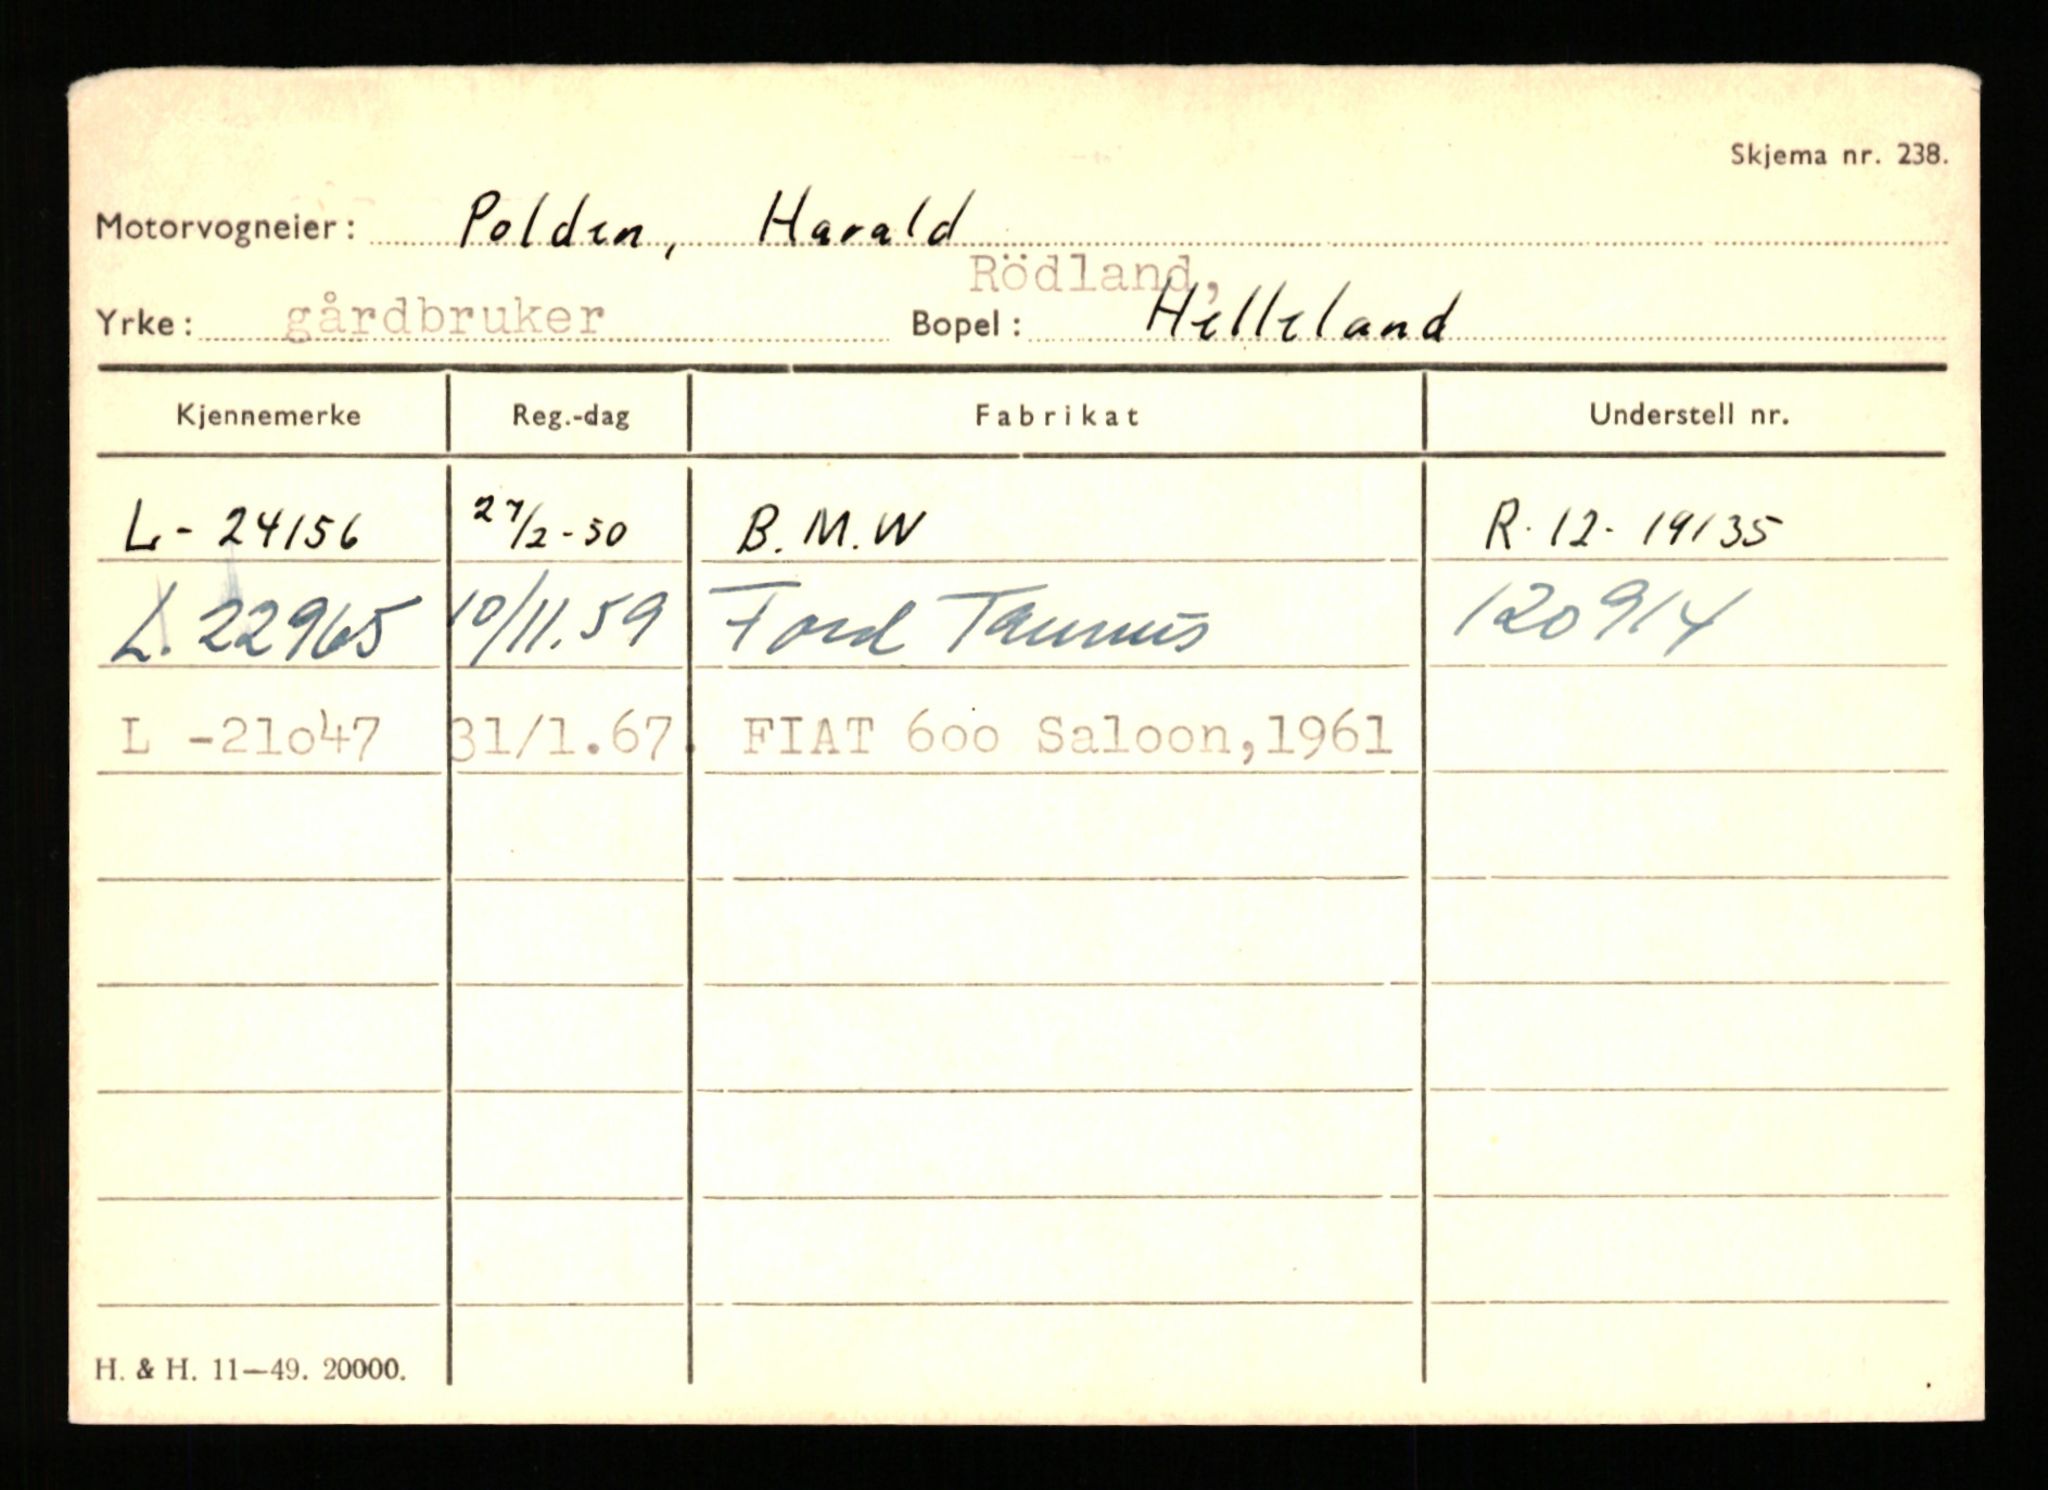 Skjema nr. 238.
Motorvogneier: Polden, Harald
Rödland,
Yrke: gårdbruker Bopel: Helleland
Kjennemerke Reg.-dag Fabrikat Understell nr.
L - 24156 27/2 - 50 B. M. W R. 12 - 19135
L. 22965 10/11. 59 Ford Taunus 120914
L -21o47 31/1.67. FIAT 6oo Saloon,1961
H. & H. 11—49. 20000.